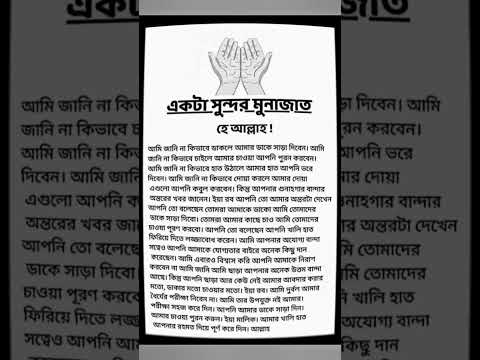 একটা সুন্দর মুনাজাত
হে আল্লাহ !
আমি জানি না কিভাবে ডাকলে আমার ডাকে সাড়া দিবেন। আমি
জানি না কিভাবে চাইলে আমার চাওয়া আপনি পুরন করবেন।
আমি জানি না কিভাবে হাত উঠালে আমার হাত আপনি ভরে
দিবেন। আমি জানি না কিভাবে দোয়া করলে আমার দোয়া
এগুলো আপনি কবুল করবেন। কিন্তু আপনার গুনাহগার বান্দার
অন্তরের খবর জানেন। ইয়া রব আপনি তো আমার অন্তরটা দেখেন
আপনি তো বলেছেন তোমরা আমাকে ডাকো আমি তোমাদের
ডাকে সাড়া দিবো। তোমরা আমার কাছে চাও আমি তোমাদের
চাওয়া পূরণ করবো। আপনি তো বলেছেন আপনি খালি হাত
ফিরিয়ে দিতে লজ্জাবোধ করেন। আমি আপনার অযোগ্য বান্দা
সত্বেও আপনি আমাকে যোগ্যতার বাইরে অনেক কিছু দান
করেছেন। আমি এবারও বিশ্বাস করি আপনি আমাকে নিরাশ
করবেন না আমি জানি আমি ছাড়া আপনার অনেক উত্তম বান্দা
আছে। কিন্তু আপনি ছাড়া আর কেউ নেই আমার আবদার করার
মতো, ডাকার মতো চাওয়ার মতো। ইয়া রব। আমি দুর্বল আমার
ধৈর্যের পরীক্ষা নিবেন না। আমি তার উপযুক্ত নই আমার।
পরীক্ষা সহজ করে দিন। আপনি আমার ডাকে সাড়া দিন।
আমার চাওয়া পুরন করুন। ইয়া মালিক। আমার খালি হাত
আপনার রহমত দিয়ে পূর্ণ করে দিন। আল্লাহ